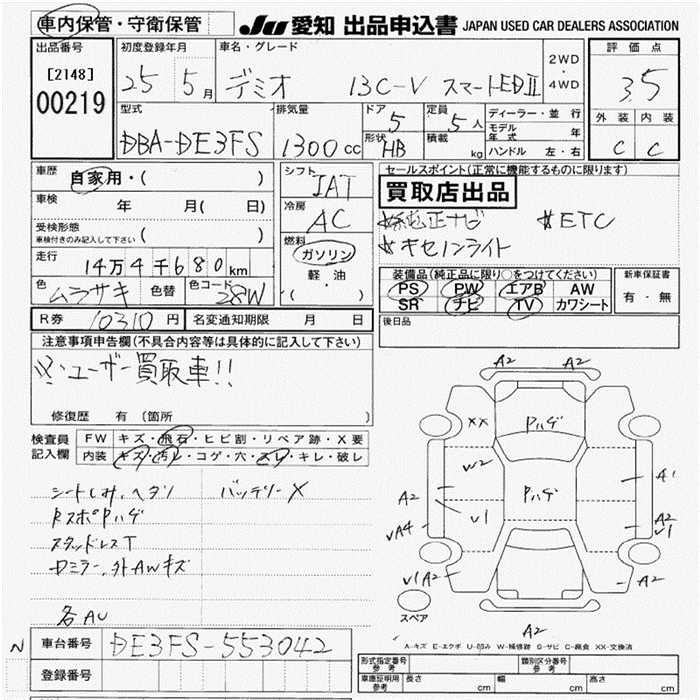 車内保管・守衛保管 JU 愛知 出品申込書 JAPAN USED CAR DEALERS ASSOCIATION
出品番号 初度登録年月 車名・グレード 2WD ・ 4WD 評価点
[2148] 25 5月 デミオ 13C-V スマートEDⅡ 3.5
00219
型式 排気量 ドア 5 定員 5人 ディーラー・並行 外装 内装
DBA-DE3FS 1300cc 形状 HB 積載 kg モデル年式 年 C C
ハンドル 左・右
車歴 自家用・( ) シフト IAT セールスポイント(正常に機能するものに限ります)
車検 年 月( 日) 冷房 AC 買取店出品
受検形態 車検付きのみ記入して下さい ( ) 燃料 ガソリン 軽・油 ( ) ☆純正ナビ ☆ETC
☆キセノンライト
走行 14万4千680km 装備品(純正品に限り○をつけてください) 新車保証書
色 ムラサキ 色替 色コード 28W PS PW エアB AW 有・無
SR ナビ TV カワシート
R券 10310円 名変通知期限 月 日 後日品
注意事項申告欄(不具合内容等は具体的に記入して下さい)
※ユーザー買取車!!
修復歴 有 (箇所 )
検査員記入欄 FW キズ・飛石・ヒビ割・リペア跡・X要
内装 キズ・汚レ・コゲ・穴・スレ・キレ・破レ
シートしみ、ヘタリ バッテリーX
RスポPハゲ
スタッドレスT
Dミラー、外AWキズ
各AU
A2 A2
XX Pハゲ
W2 Pハゲ A1
A2 V1 A2
VA4 V1
V1 A2 A2
スペア
A2
A-キズ E-エクボ U-凹み W-補修跡 S-サビ C-腐食 XX-交換済
N 車台番号 DE3FS-553042
登録番号
形式指定番号 参考 類別区分番号 参考
車庫証明用 参考 長さ cm 幅 cm 高さ cm